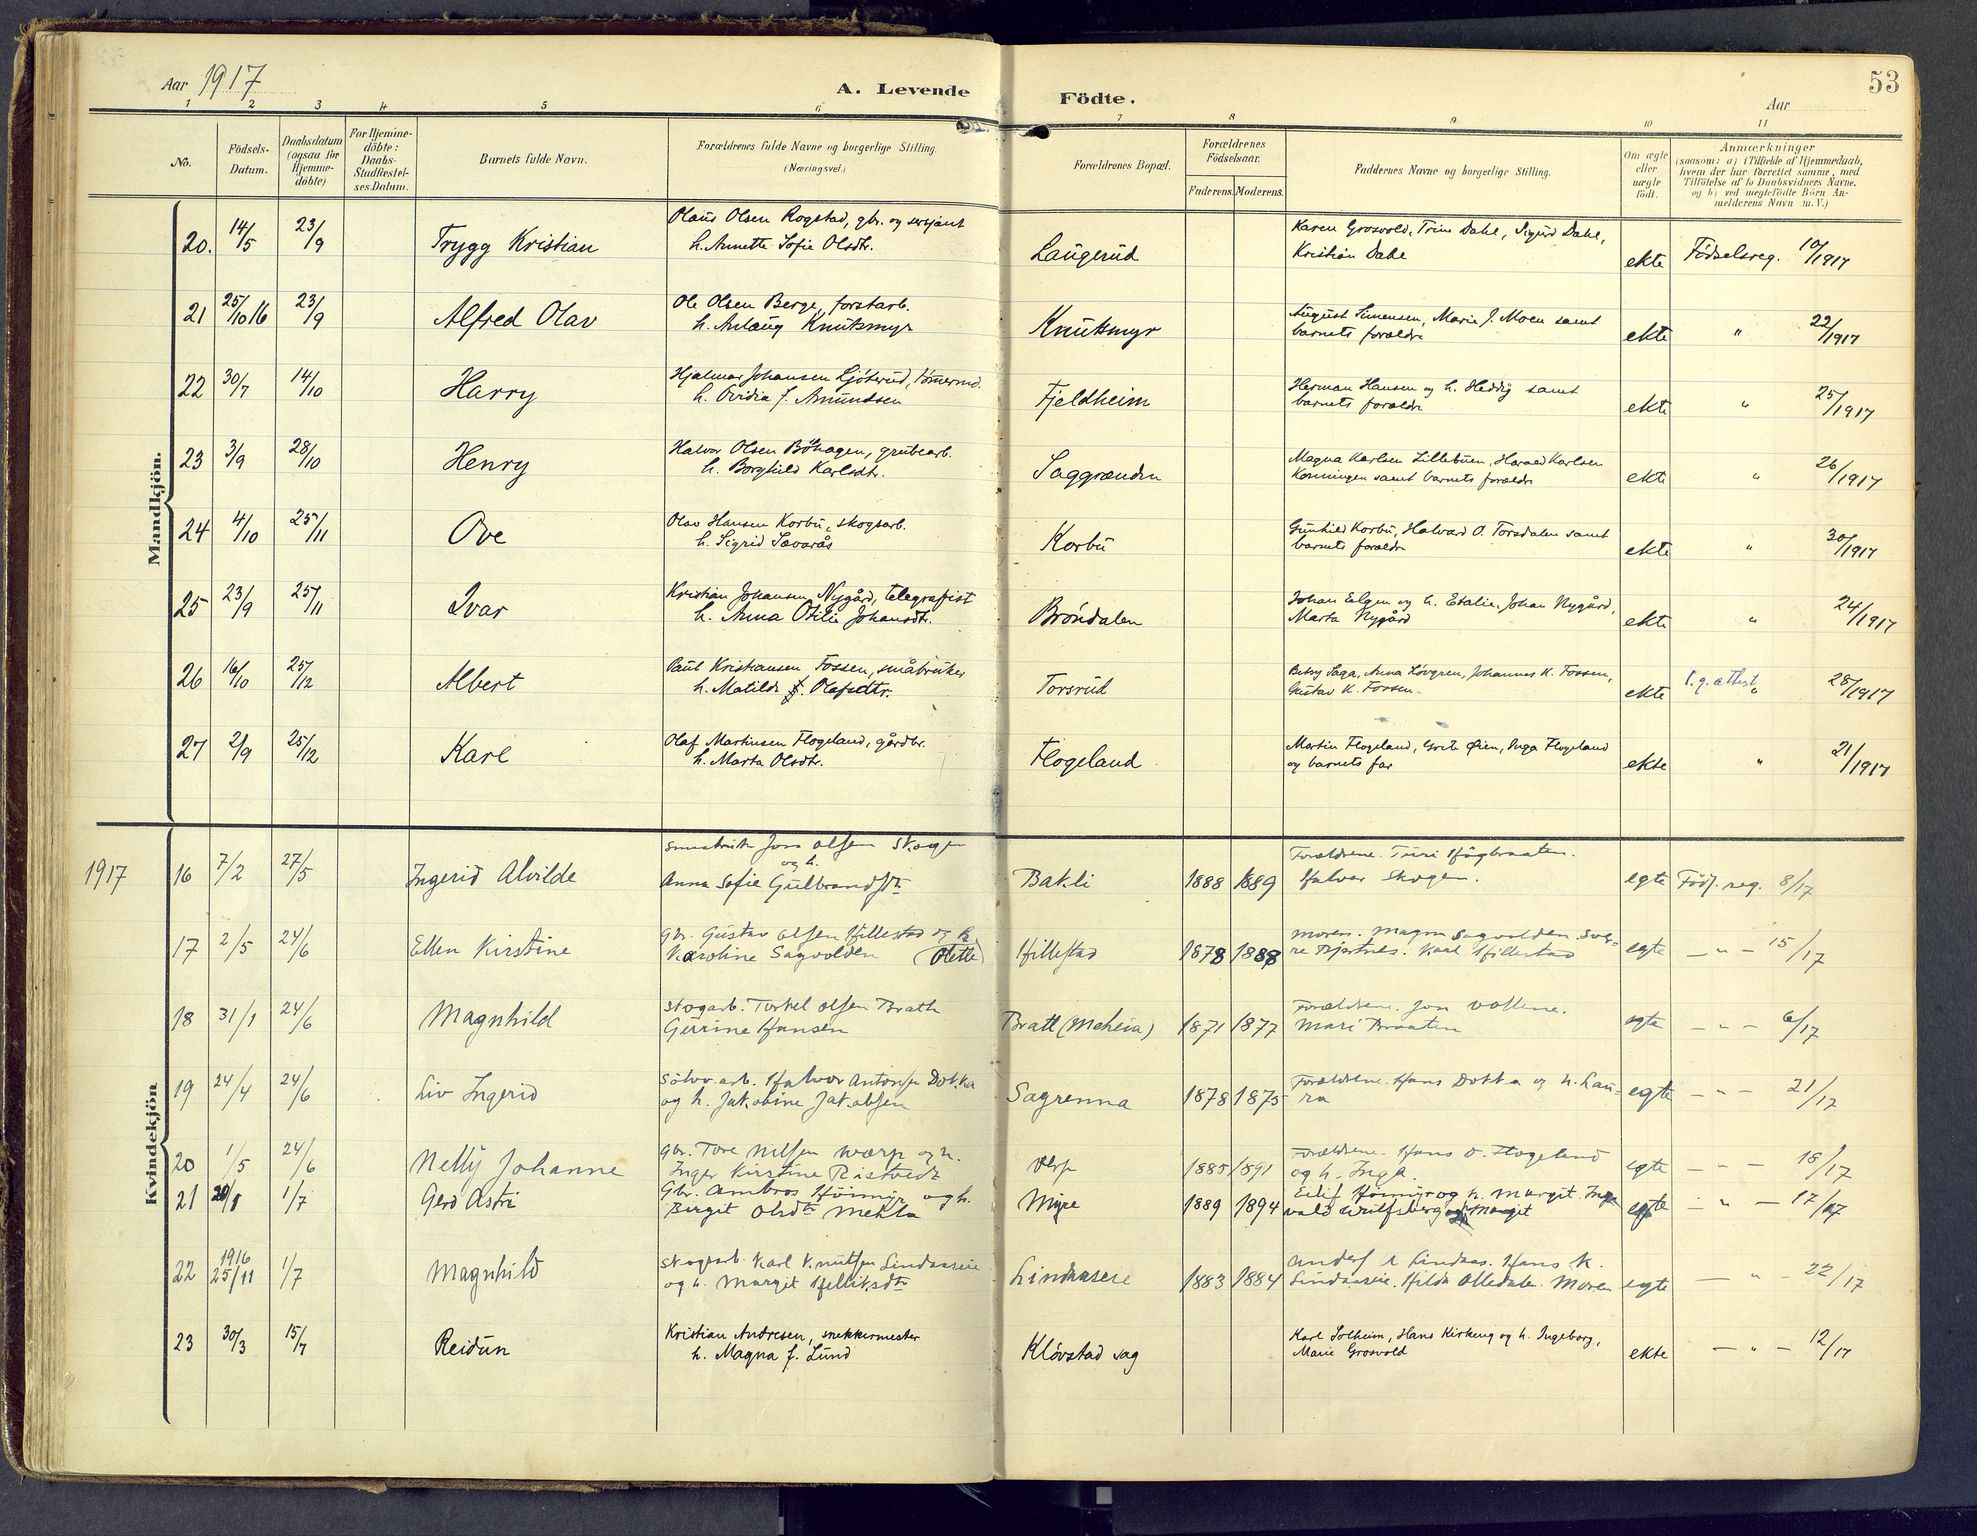 Aar 1917
A. Levende Födte.
Aar
53
1 2 3 4 5 6 7 8 9 10 11
No.
Födsels-Datum.
Daabsdatum (ogsaa for Hjemme-döbte)
For Hjemme-döbte: Daabs-Stadfæstel-ses Datum.
Barnets fulde Navn.
Forældrenes fulde Navne og borgerlige Stilling.
(Næringsvei.)
Forældrenes Bopæl.
Forældrenes Födselsaar.
Faderens. Moderens.
Faddernes Navne og borgerlige Stilling.
Om ægte eller uægte födt.
Anmærkninger
(saasom: a) i Tilfælde af Hjemmedaab, hvem der har forrettet samme, med Tilföielse af to Daabsvidners Navne. og b) ved uægtefödte Börn An-melderens Navn m. V.)
Mandkjön.
20. 14/5 23/9 Trygg Kristian Olaus Olsen Rogstad, gbr. og sersjant
h. Annette Sofie Olsdtr. Laugerud Karen Grosvold, Trine Dahl, Sigurd Dahl,
Kristian Dahl ekte Födselsreg. 10/1917
21 25/10 16 23/9 Alfred Olav Ole Olsen Berge, forstarb.
h. Anlaug Knutsmyr Knutsmyr August Simensen, Marie J. Moen samt
barnets foreldre ekte " 22/1917
22 30/7 14/10 Harry Hjalmar Johansen Ljøterud, tømermd.
h. Ovidia f. Amundsen Fjeldheim Herman Hansen og h. Hedvig samt
barnets foreldre ekte " 25/1917
23 3/9 28/10 Henry Halvor Olsen Böhagen, grubearb.
h. Borghild Karlsdtr. Saggrenden Magna Karlsen Lillebuen, Harald Karlsen
samt barnets foreldre ekte " 26/1917
24 4/10 25/11 Ove Olav Hansen Korbu, skogsarb.
h. Sigrid Sævarås Korbu Gunhild Korbu, Halvard O. Torsdalen samt
barnets foreldre ekte " 30/1917
25 23/9 25/11 Ivar Kristian Johansen Nygård, telegrafist
h. Anna Otilie Johansdtr. Brøndalen Johan Elgen og h. Etalie, Johan Nygård,
Marta Nygård ekte " 24/1917
26 16/10 25/12 Albert Paul Kristiansen Fossen, småbruker
h. Matilde f. Olafsdtr. Torsrud Betsy Saga, Anna Løvgren, Johannes K. Fossen,
Gustav K. Fossen. ekte f.g. attest " 28/1917
27 2/9 25/12 Karl Olaf Martinsen Flogeland, gårdbr.
h. Marta Olsdtr. Flogeland Martin Flogeland, Grete Øien, Inga Flogeland
og barnets far ekte " 21/1917
1917
Kvindekjön
16 7/2 27/5 Ingerid Alvilde Jon Olsen Skogen
og h.
Anna Sofie Gulbrandsdtr Bakli 1888 1889 Forældrene. Turi Högbraaten.
Halvor Skogen. egte Föds. reg. 8/17
17 2/5 24/6 Ellen Kirstine Gbr. Gustav Olsen Hillestad og h.
Karoline Sagvolden (Olette) Hillestad 1878 1888 Moren. Magna Sagvolden.
Bjertnes. Karl Hillestad egte — " — 15/17
18 31/1 24/6 Magnhild Skogarb. Torkel Olsen Bratli
Gurine Hansen Bratt (Meheia) 1871 1877 Forældrene. Jon Vollene.
Mari Braaten egte — " — 6/17
19 24/4 24/6 Liv Ingerid Sölvv.arb. Halvor Antonsen Dokka
og h. Jakobine Jakobsen Sagrenna 1878 1875 Forældrene. Hans Dokka og h. Lau-
ra egte — " — 21/17
20 1/5 24/6 Nelly Johanne Gbr. Tore Nilsen Werp og h.
Inger Kirstine Ristvedt Verp 1885 1891 Forældrene. Hans O. Flogeland
og h. Inga. egte — " — 18/17
21 1/7 Gerd Astri Gbr. Ambros Höimyr og h.
Birgit Olsdtr Mehla Myre 1889 1894 Eilif Höimyr og h. Margit. Ing-
vald egte — " — 17/17
22 1916 25/11 1/7 Magnhild Skogarb. Karl Knutsen Lindaaseie
og h. Margit Helliksdtr Lindaaseie 1883 1884 Lindaas. Hans K.
Lindaaseie. Hilda Olledalen. Moren egte — " — 22/17
23 30/3 15/7 Reidun Kristian Andresen, snekkermester
h. Magna f. Lund Kløvstad sag Karl Solheim, Hans Kirkeng og h. Ingeborg,
Marie Grosvold ekte — " — 12/17